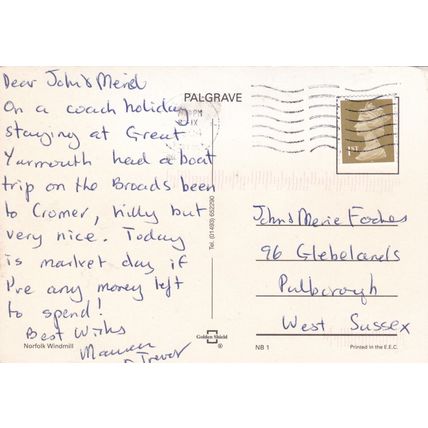 Dear John & Meriel
On a coach holiday
staying at Great
Yarmouth had a boat
trip on the Broads been
to Cromer, hilly but
very nice. Today
is market day if
I've any money left
to spend!
Best Wishes
Maureen
& Trevor
Norfolk Windmill
PALGRAVE
Tel. (01493) 652290
Golden Shield
®
1ST
John & Merie
96 Glebelands
Pulborough
West Sussex
NB 1
Printed in the E.E.C.